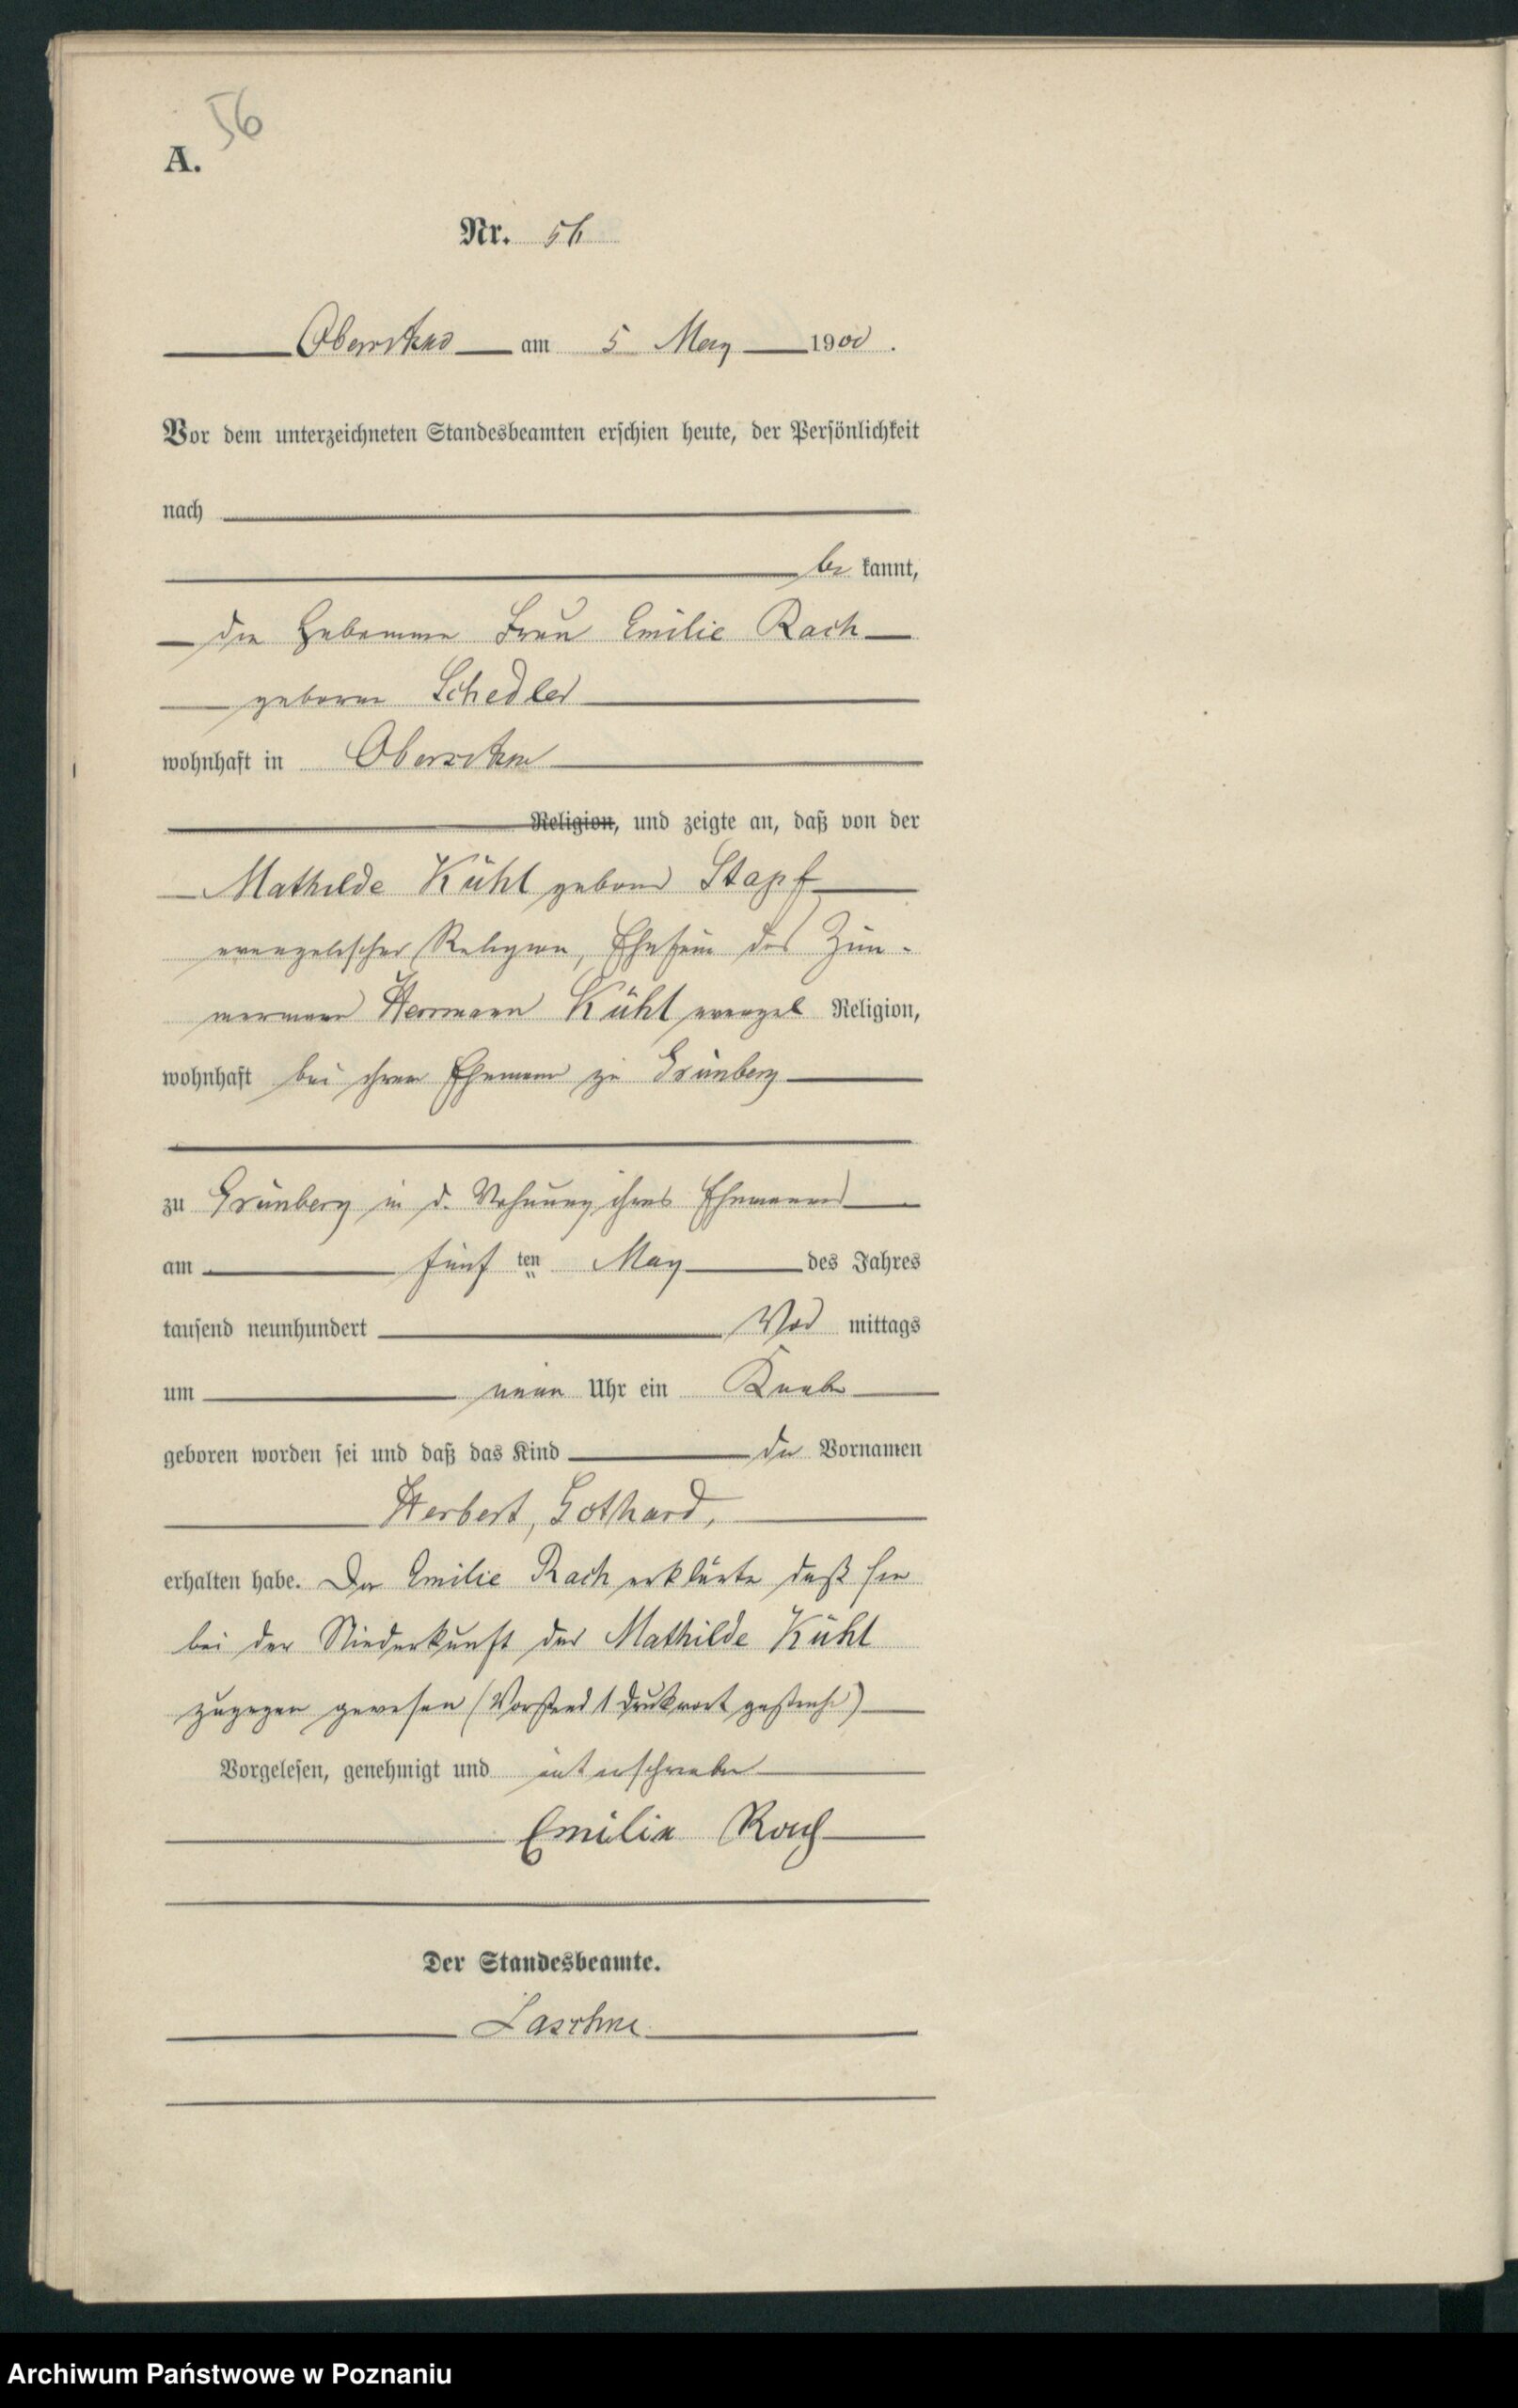 56
A.
Nr. 56
am 5 May 1900.
Vor dem unterzeichneten Standesbeamten erschien heute, der Persönlichkeit
nach
be kannt,
die Hebamme Frau Emilie Rach
geborne Schedler
wohnhaft in
Religion, und zeigte an, daß von der
Mathilde Kühl geborne Stapf
evangelischer Religion, Ehefrau des Zim-
mermann Herrmann Kühl evangel Religion,
wohnhaft bei ihrem Ehemann zu Grünberg
zu Grünberg in d. Wohnung ihres Ehemannes
am fünf ten May des Jahres
tausend neunhundert Vor mittags
um neun Uhr ein Knabe
geboren worden sei und daß das Kind die Vornamen
Herbert, Gothard,
erhalten habe. Die Emilie Rach erklärte daß sie
bei der Niederkunft der Mathilde Kühl
zugegen gewesen (Vorstend 1 Druckwort gestrich)
Vorgelesen, genehmigt und unterschrieben
Emilie Rach
Der Standesbeamte.
Archiwum Państwowe w Poznaniu